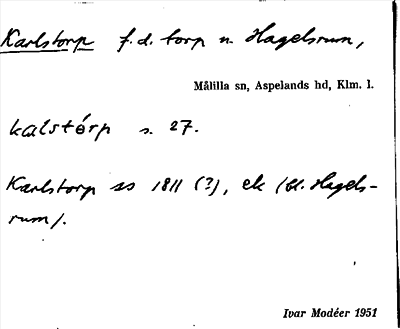 Karlstorp f.d. torp u. Hagelsrum,
Målilla sn, Aspelands hd, Klm. l.
kalstórp s. 27.
Karlstorp ss 1811 (?), ek (bl. Hagels-
rum).
Ivar Modéer 1951